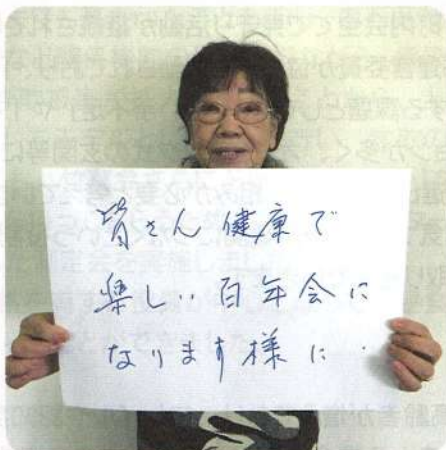 皆さん健康で
楽しい百年会に
なります様に.